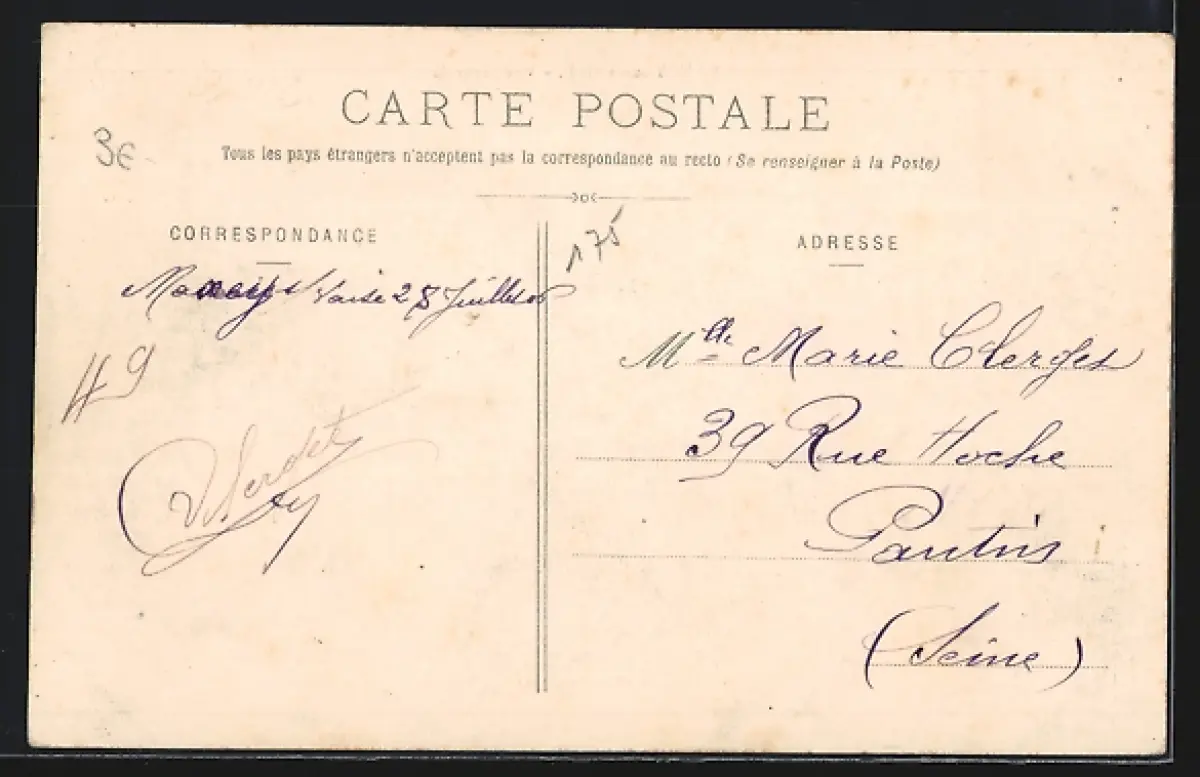 CARTE POSTALE
3€
Tous les pays étrangers n'acceptent pas la correspondance au recto (Se renseigner à la Poste)
CORRESPONDANCE
28 Juillet
49
175
ADRESSE
Mlle Marie Clerges
39 Rue Hoche
Pantin
(Seine)